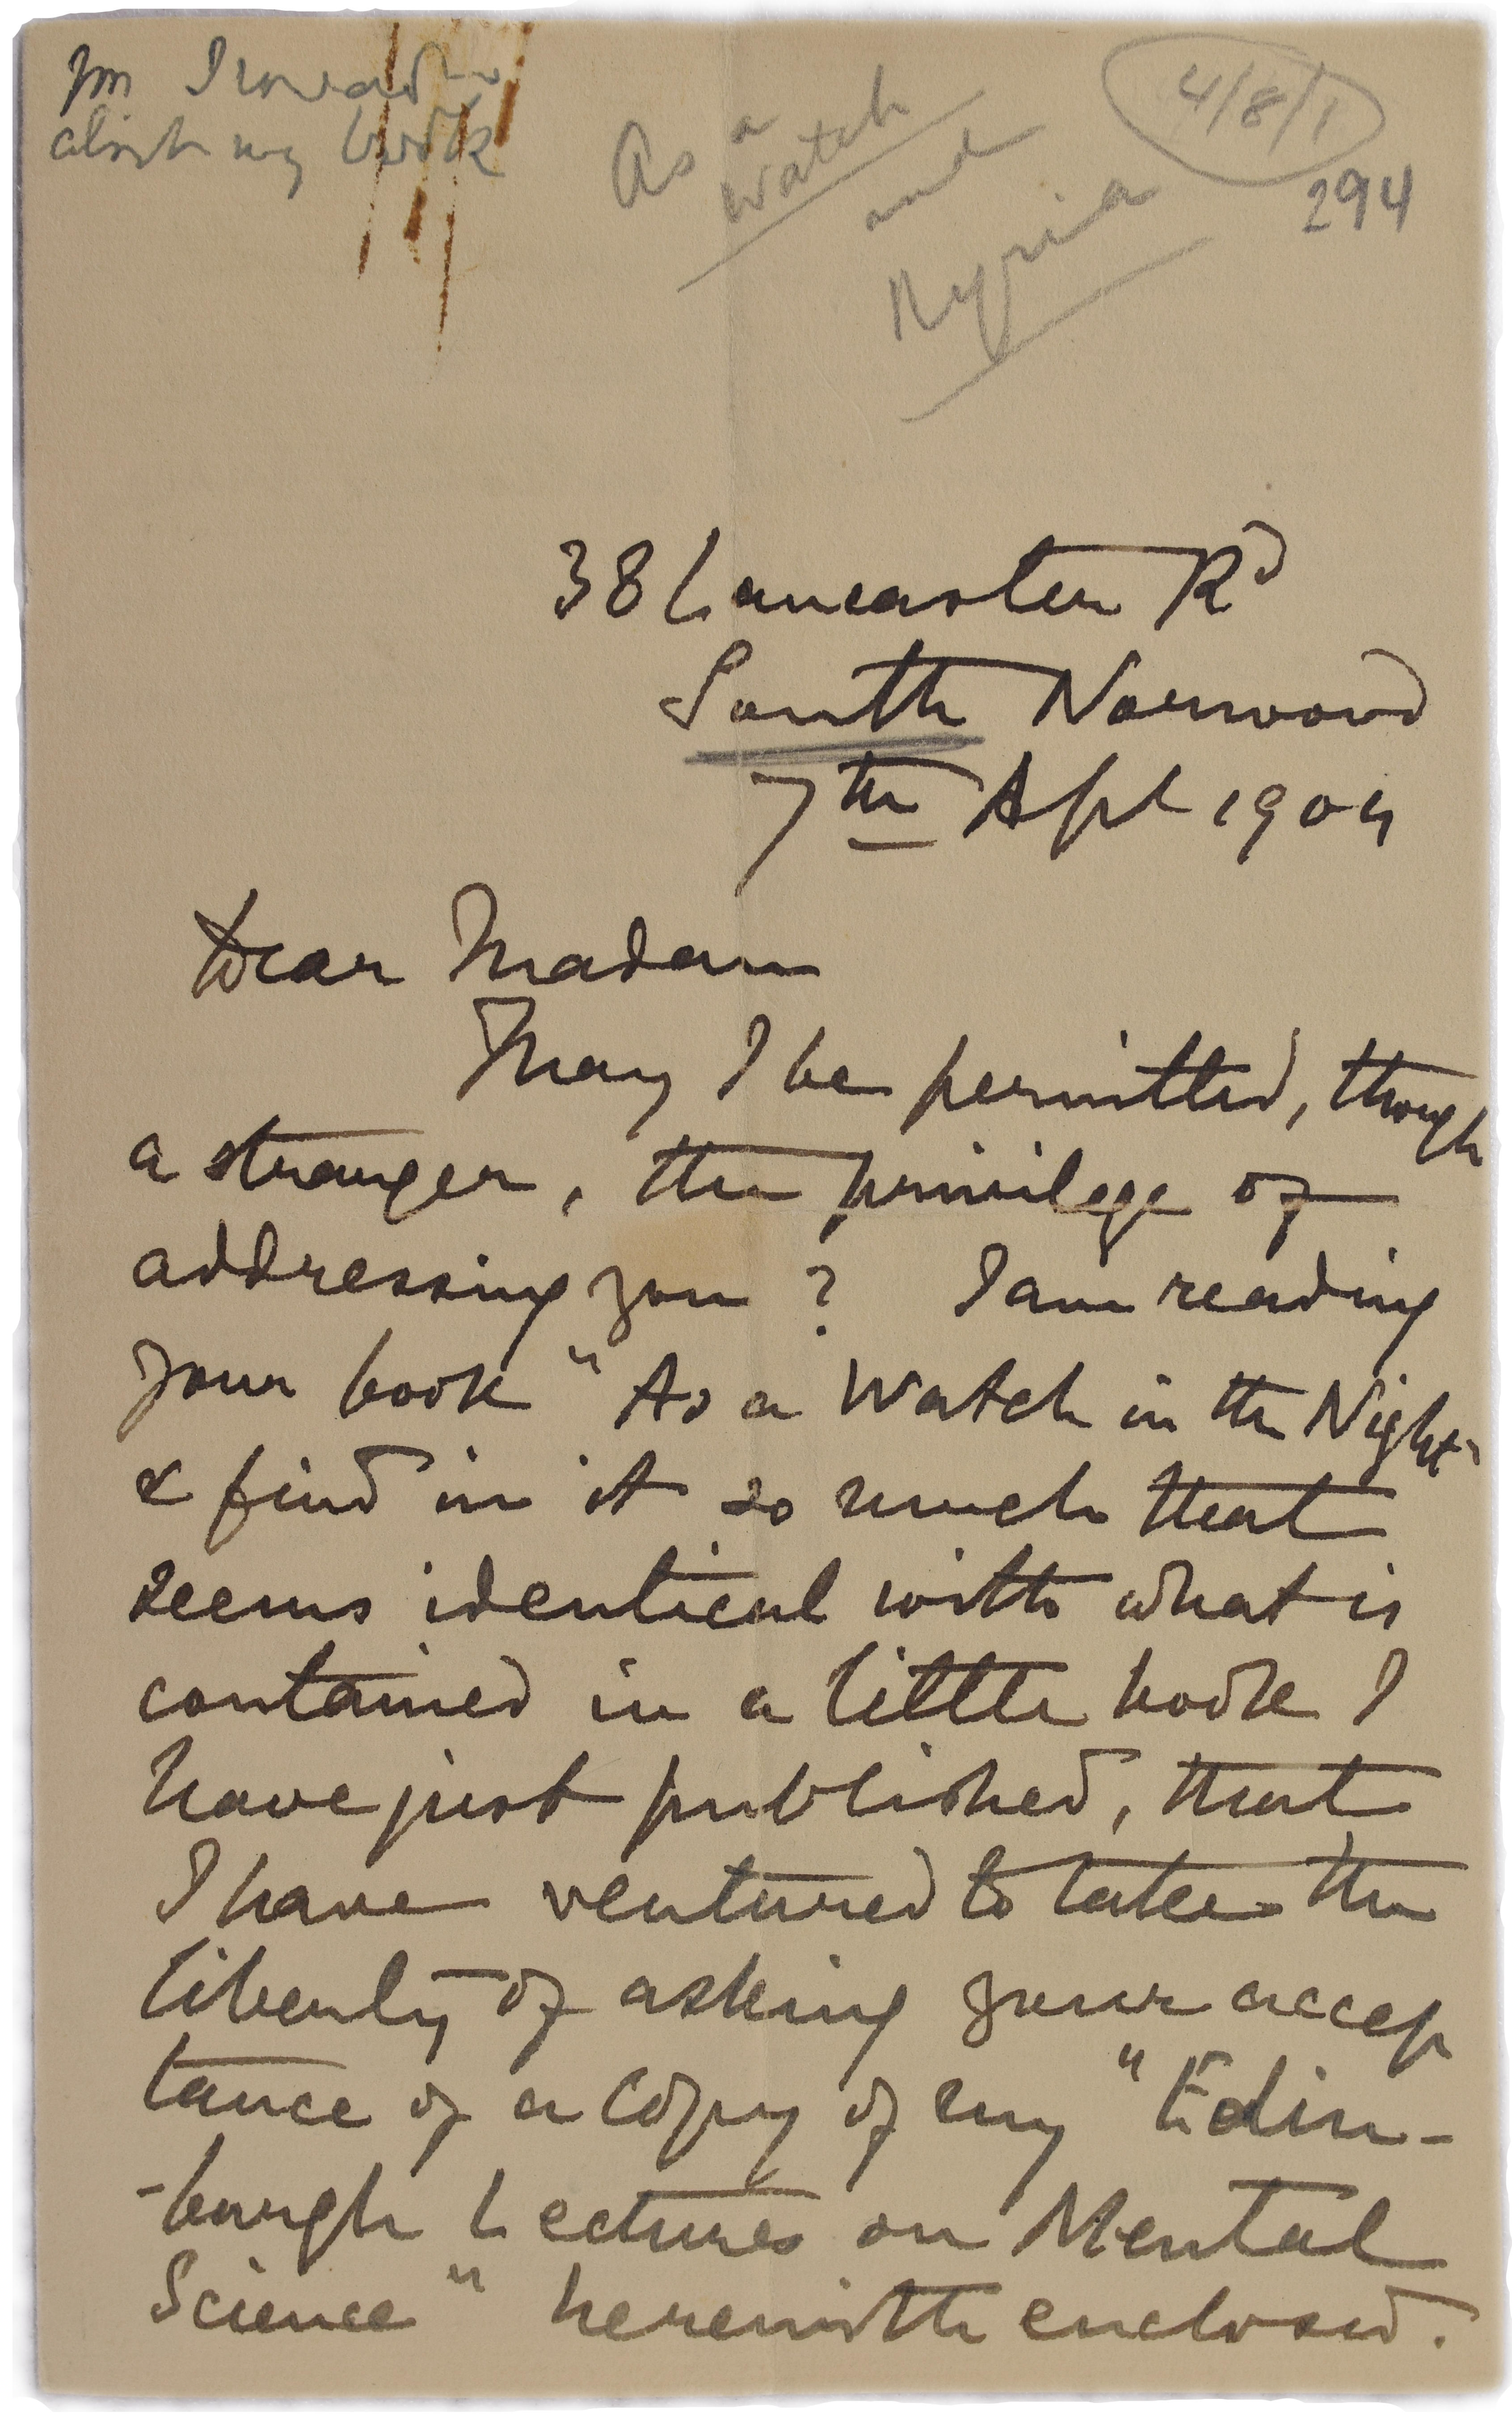 about my book
As a
Watch
and
4/8/1
294
38 Lancaster Rd
South Norwood
7th Apl 1904
Dear Madam
May I be permitted, though
a stranger, the privilege of
addressing you ? I am reading
your book "As a Watch in the Night"
& find in it so much that
seems identical with what is
contained in a little book I
have just published, that
I have ventured to take the
liberty of asking your accep
tance of a copy of my "Edin-
-burgh Lectures on Mental
Science" herewith enclosed.